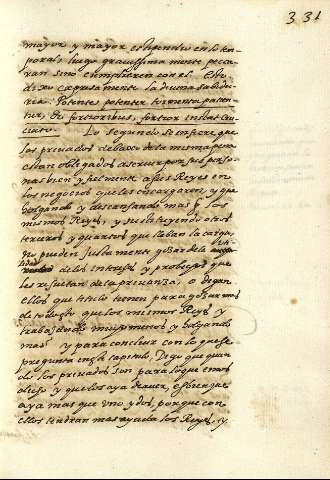 331
mayor y mayor estipendio en lo tem
poral; luego gravissima mente peca
ran sino cumplieren con el. Esto
dixo expresamente la divina sabidu
ria: Potentes potenter tormenta patien
tur, et fortioribus, fortior instat cru
ciatio. Lo segundo se infiere que
los privados debaxo de la misma pena
estan obligados a servir por sus perso
nas bien y fielmente a sus Reyes en
los negocios que les encargaren, y que
holgando y descansando mas q los
mismos Reyes, y substituyendo otros
terceros y quartos que lleban la carga,
no pueden justa mente gozar de la
de los intereses y probechos que
les resultan de la privanza, o digan
ellos que titulo tienen para gozar mas
de todo esto que los mismos Reyes y
trabajando mucho menos y holgando
mas y para concluir con lo que se
pregunta en este capitulo, Digo que quan
do los privados son para lo que emos
dicho y que los aya de aver, es bien que
aya mas que uno y dos, porque con
ellos tendran mas ayuda los Reyes, y